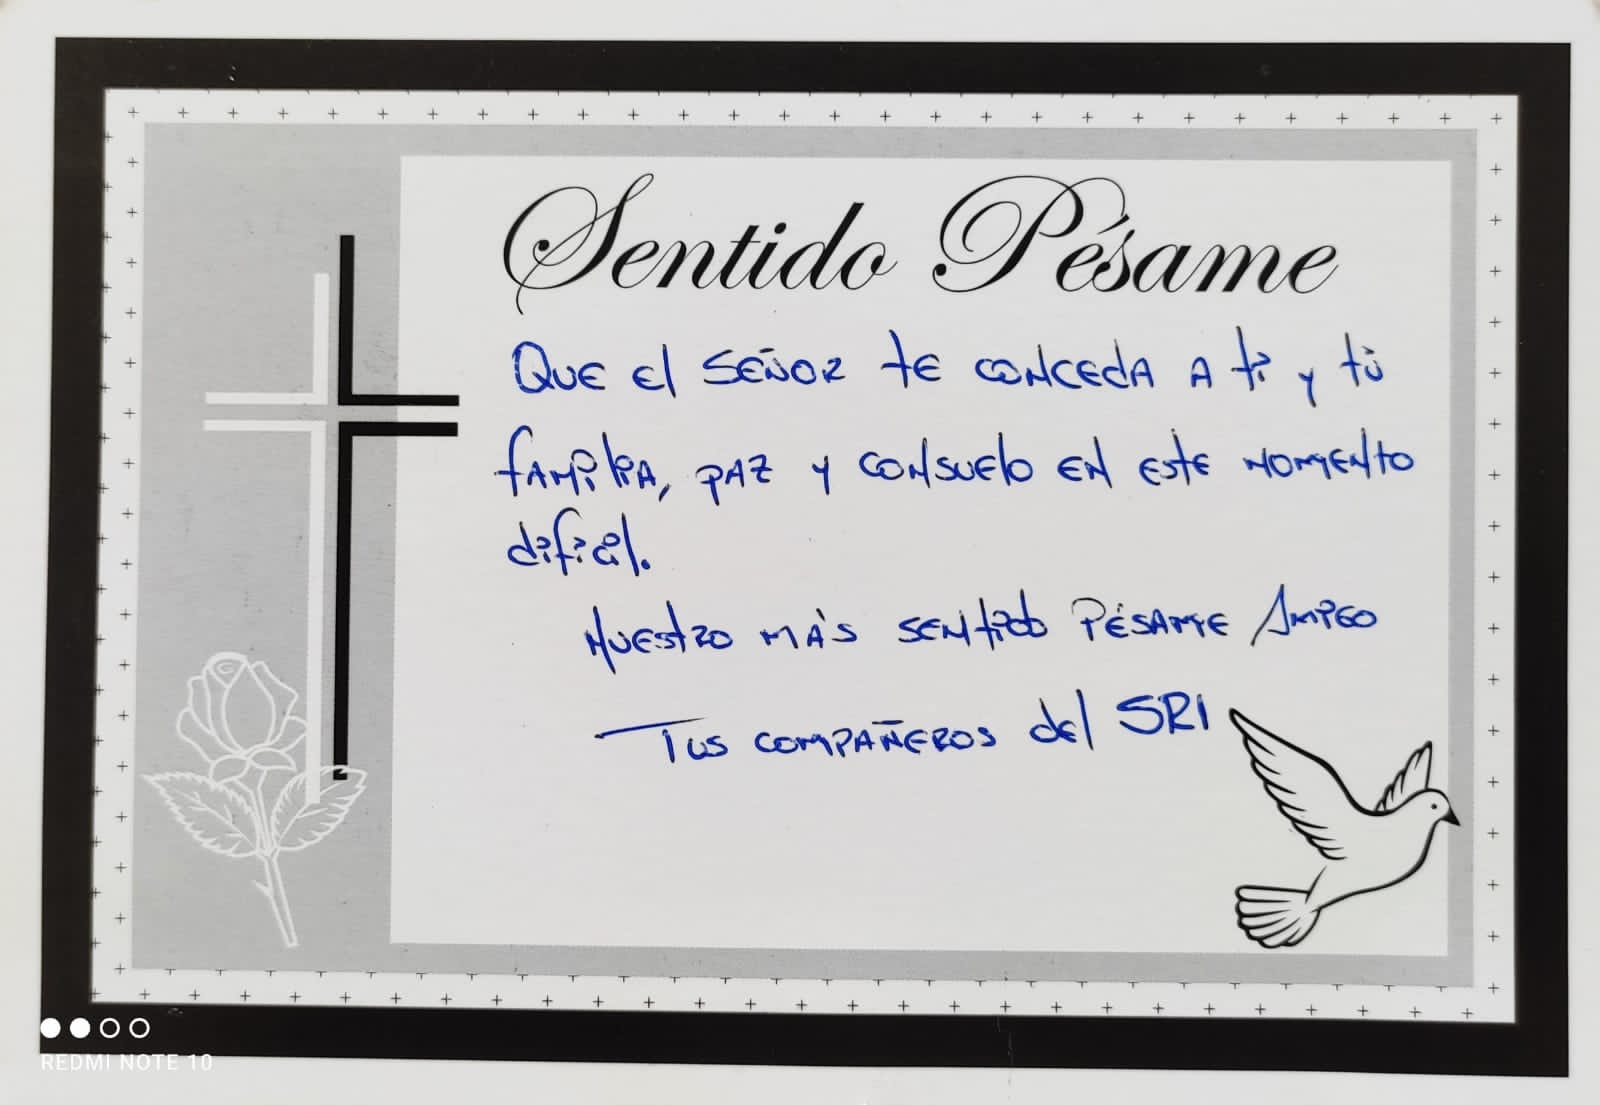 Sentido Pésame
QUE El SEÑOR tE CONCEdA A ti y tú
fAMiliA, PAZ y CONSUElO EN EStE MOMENtO
difícil.
NUEStRO MÁS SENtido PÉSAME AMPEO
TUS COMPAÑEROS dEl SRI
REDMI NOTE 10